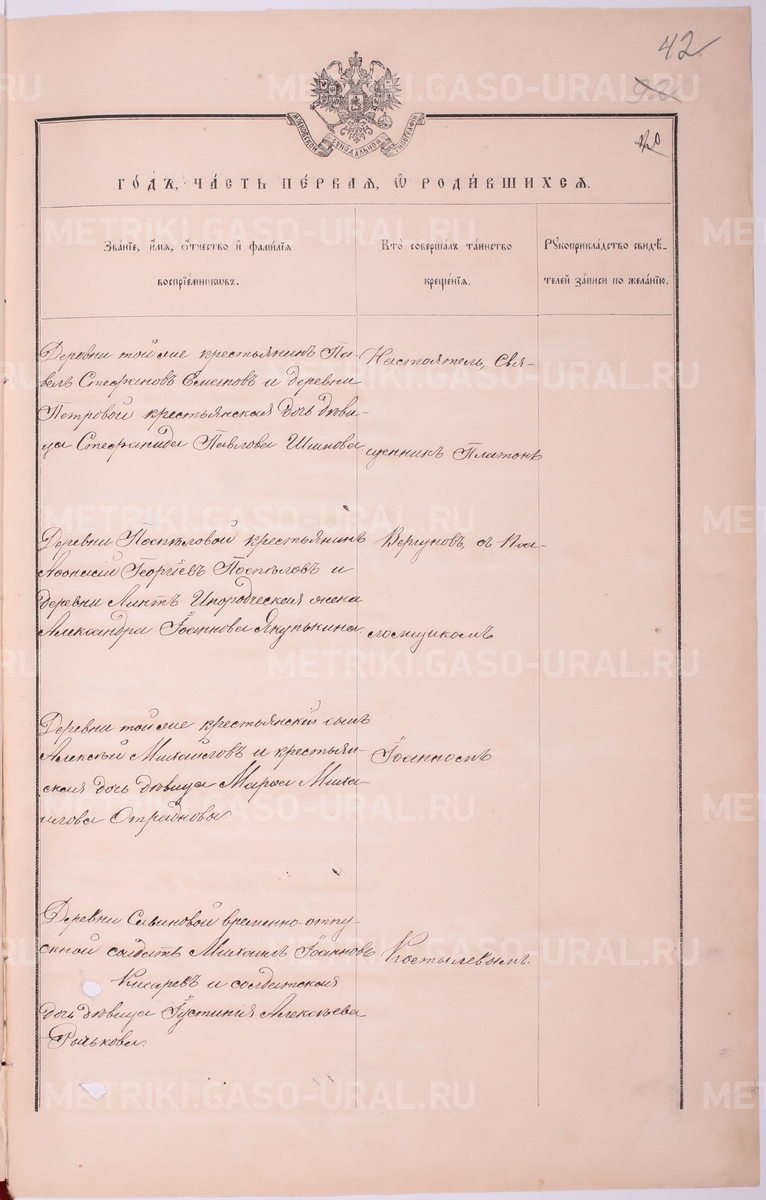 42
МОСКОВСКОЙ СѴНОДАЛЬНОЙ ТИПОГРАФІИ
ГОДЪ, ЧАСТЬ ПЕРВАЯ, Ѡ РОДИВШИХСЯ.
Званїе, имя, отчество и фамилїя
воспрїемниковъ.
Кто совершалъ таинство
крещенїя.
Рукоприкладство свидѣ-
телей записи по желанїю.
Деревни той же крестьянинъ Па-
велъ Стефановъ и деревни
Петровой крестьянская дочь дѣви-
ца Стефанида Павлова
Настоятель, Свя-
щенникъ Платонъ
Деревни Поспѣловой крестьянинъ
Аѳонасій Георгіевъ Поспѣловъ и
деревни Инородческая жена
Александра Іоаннова Якупькина
Вергуновъ, съ Пса-
ломщикомъ
Деревни той же крестьянскій сынъ
Алексѣй Михайловъ и крестьян-
ская дочь дѣвица Марѳа Миха-
илова
Іоанномъ
Деревни Савиновой временно-отпу-
скной солдатъ Михаилъ Іоанновъ
и солдатская
дочь дѣвица Іустинія Алексѣева
Рычкова.
Костылевымъ.
METRIKI.GASO-URAL.RU